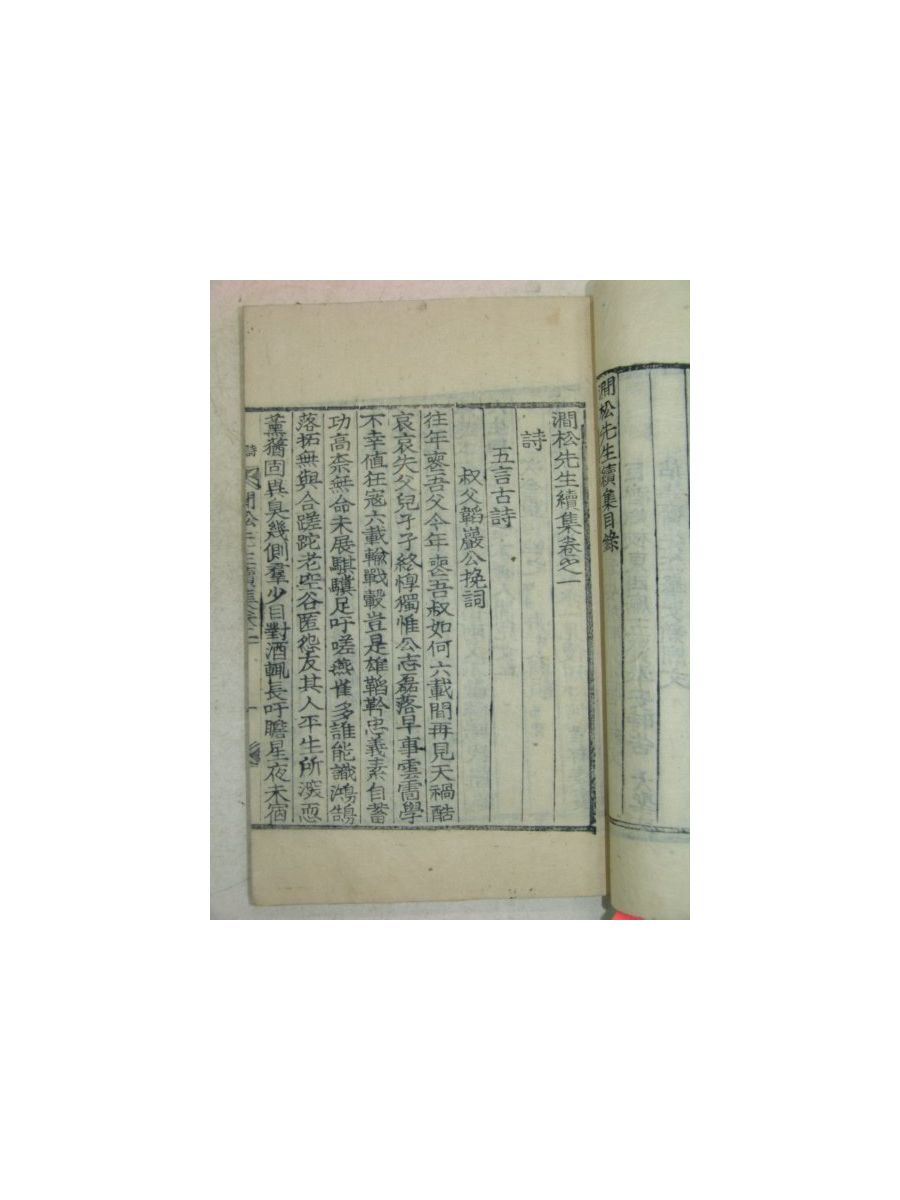 澗松先生續集目錄
澗松先生續集卷之一
詩
五言古詩
叔父韜巖公挽詞
往年喪吾父今年喪吾叔如何六載間再見天禍酷
哀哀失父兒孑孑終惸獨惟公志磊落早事雲需學
不幸値狂寇六載輪戰轂豈是雄鞱鈐忠義素自蓄
功高奈無命未展騏驥足吁嗟燕雀多誰能識鴻鵠
落拓無與合蹉跎老空谷匿怨友其人平生所深恧
薰猶固異臭幾側羣少目對酒輒長吁瞻星夜未宿